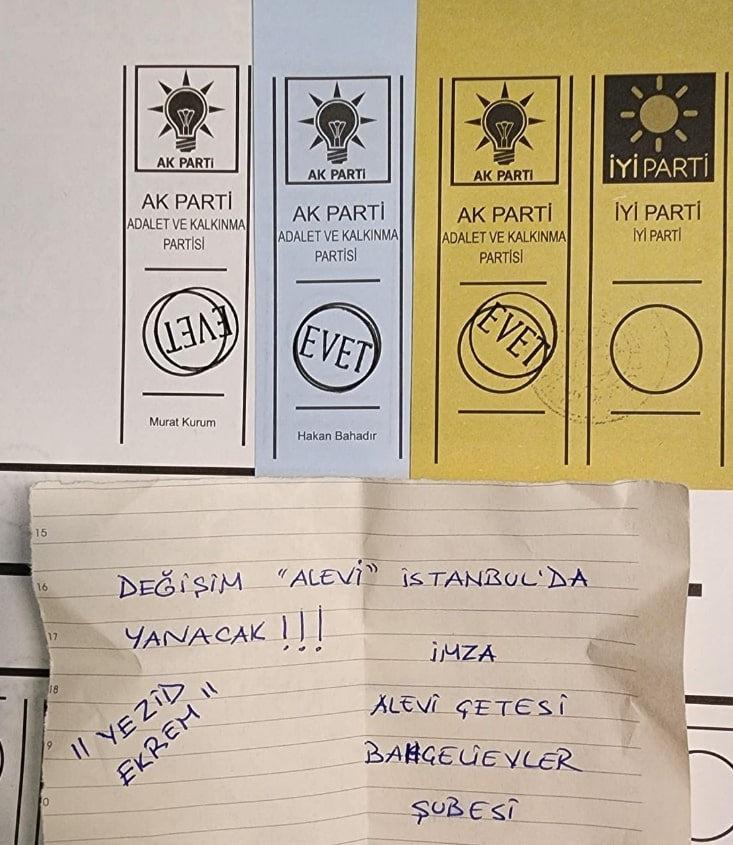 AK PARTİ
AK PARTİ
ADALET VE KALKINMA
PARTİSİ
EVET
Murat Kurum
AK PARTİ
AK PARTİ
ADALET VE KALKINMA
PARTİSİ
EVET
Hakan Bahadır
AK PARTİ
AK PARTİ
ADALET VE KALKINMA
PARTİSİ
EVET
İYİ PARTİ
İYİ PARTİ
İYİ PARTİ
15
16
17
18
9
0
DEĞİŞİM "ALEVİ" İSTANBUL'DA
YANACAK !!!
"YEZİD
EKREM"
İMZA
ALEVİ ÇETESİ
BAHÇELİEVLER
ŞUBESİ